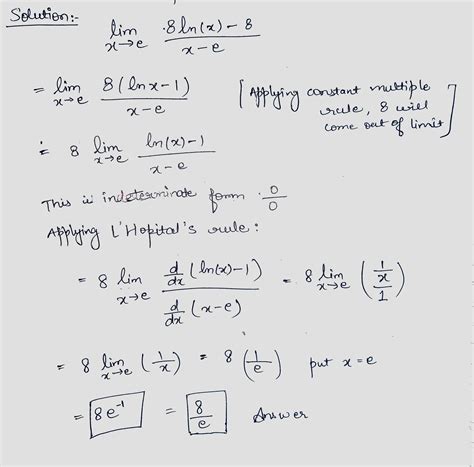 Solution:-
lim x→e (8 ln(x) - 8)/(x-e)
= lim x→e 8(ln x - 1)/(x-e) [Applying constant multiple rule, 8 will come out of limit]
= 8 lim x→e (ln(x) - 1)/(x-e)
This is indeterminate form 0/0
Applying L'Hopital's rule:
= 8 lim x→e (d/dx (ln(x)-1))/(d/dx (x-e)) = 8 lim x→e ((1/x)/1)
= 8 lim x→e (1/x) = 8 (1/e) put x = e
= 8e⁻¹ = 8/e Answer